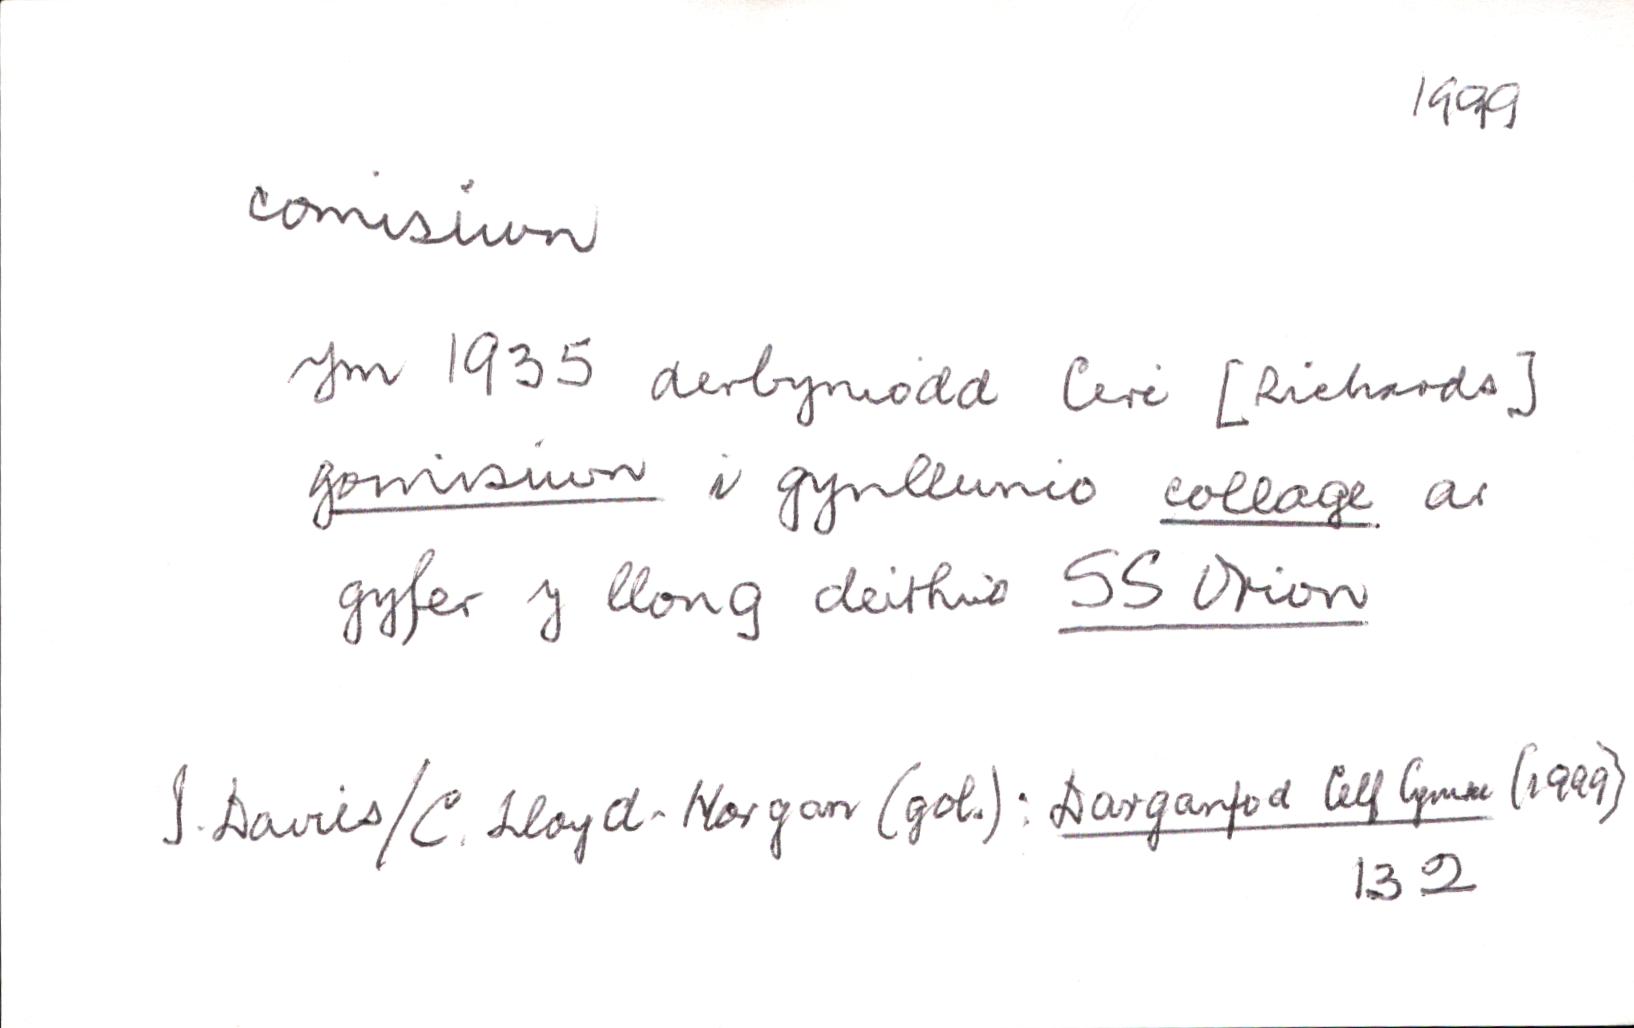 1999
comisiwn
Ym 1935 derbyniodd Ceri [Richards]
gomisiwn i gynllunio collage ar
gyfer y llong deithio SS Orion
I. Davies/C. Lloyd-Morgan (gol.): Darganfod Celf Cymru (1999)
132